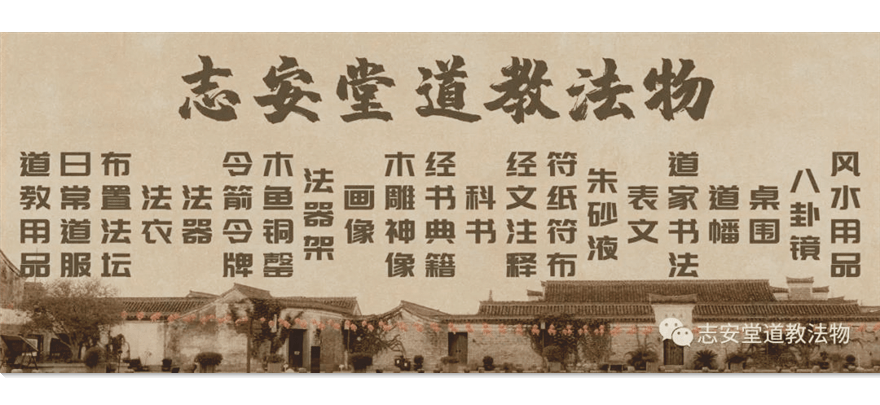 志安堂道教法物
道教用品
日常道服
布置法坛
法衣
法器
令箭令牌
木鱼铜罄
法器架
画像
木雕神像
经书典籍
科书
经文注释
符纸符布
朱砂液
表文
道家书法
道幡
桌围
八卦镜
风水用品
志安堂道教法物